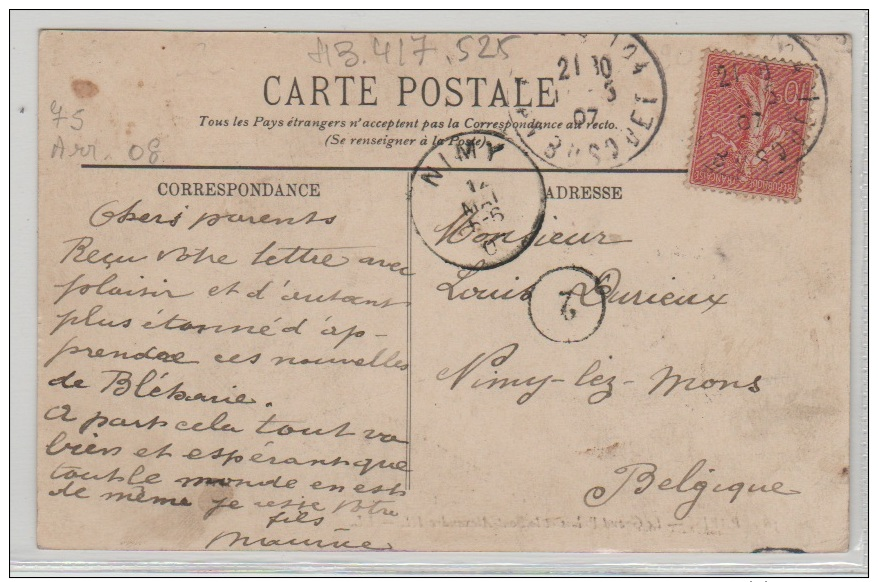 413.417.525
75
Arr. 08
CARTE POSTALE
Tous les Pays étrangers n'acceptent pas la Correspondance au recto.
(Se renseigner à la Poste).
21 30
07
BUSQUET
NIMY
14
MAI
5-6
21
07
10
REPUBLIQUE FRANÇAISE
CORRESPONDANCE
Chers parents
Reçu votre lettre avec
plaisir et d'autant
plus étonné d'ap-
prendre ces nouvelles
de Bléharie.
A part cela tout va
bien et espérant que
tout le monde en est
de même je reste votre
fils
Maurice
ADRESSE
Monsieur
Louis Durieux
Nimy-lez-Mons
Belgique
2